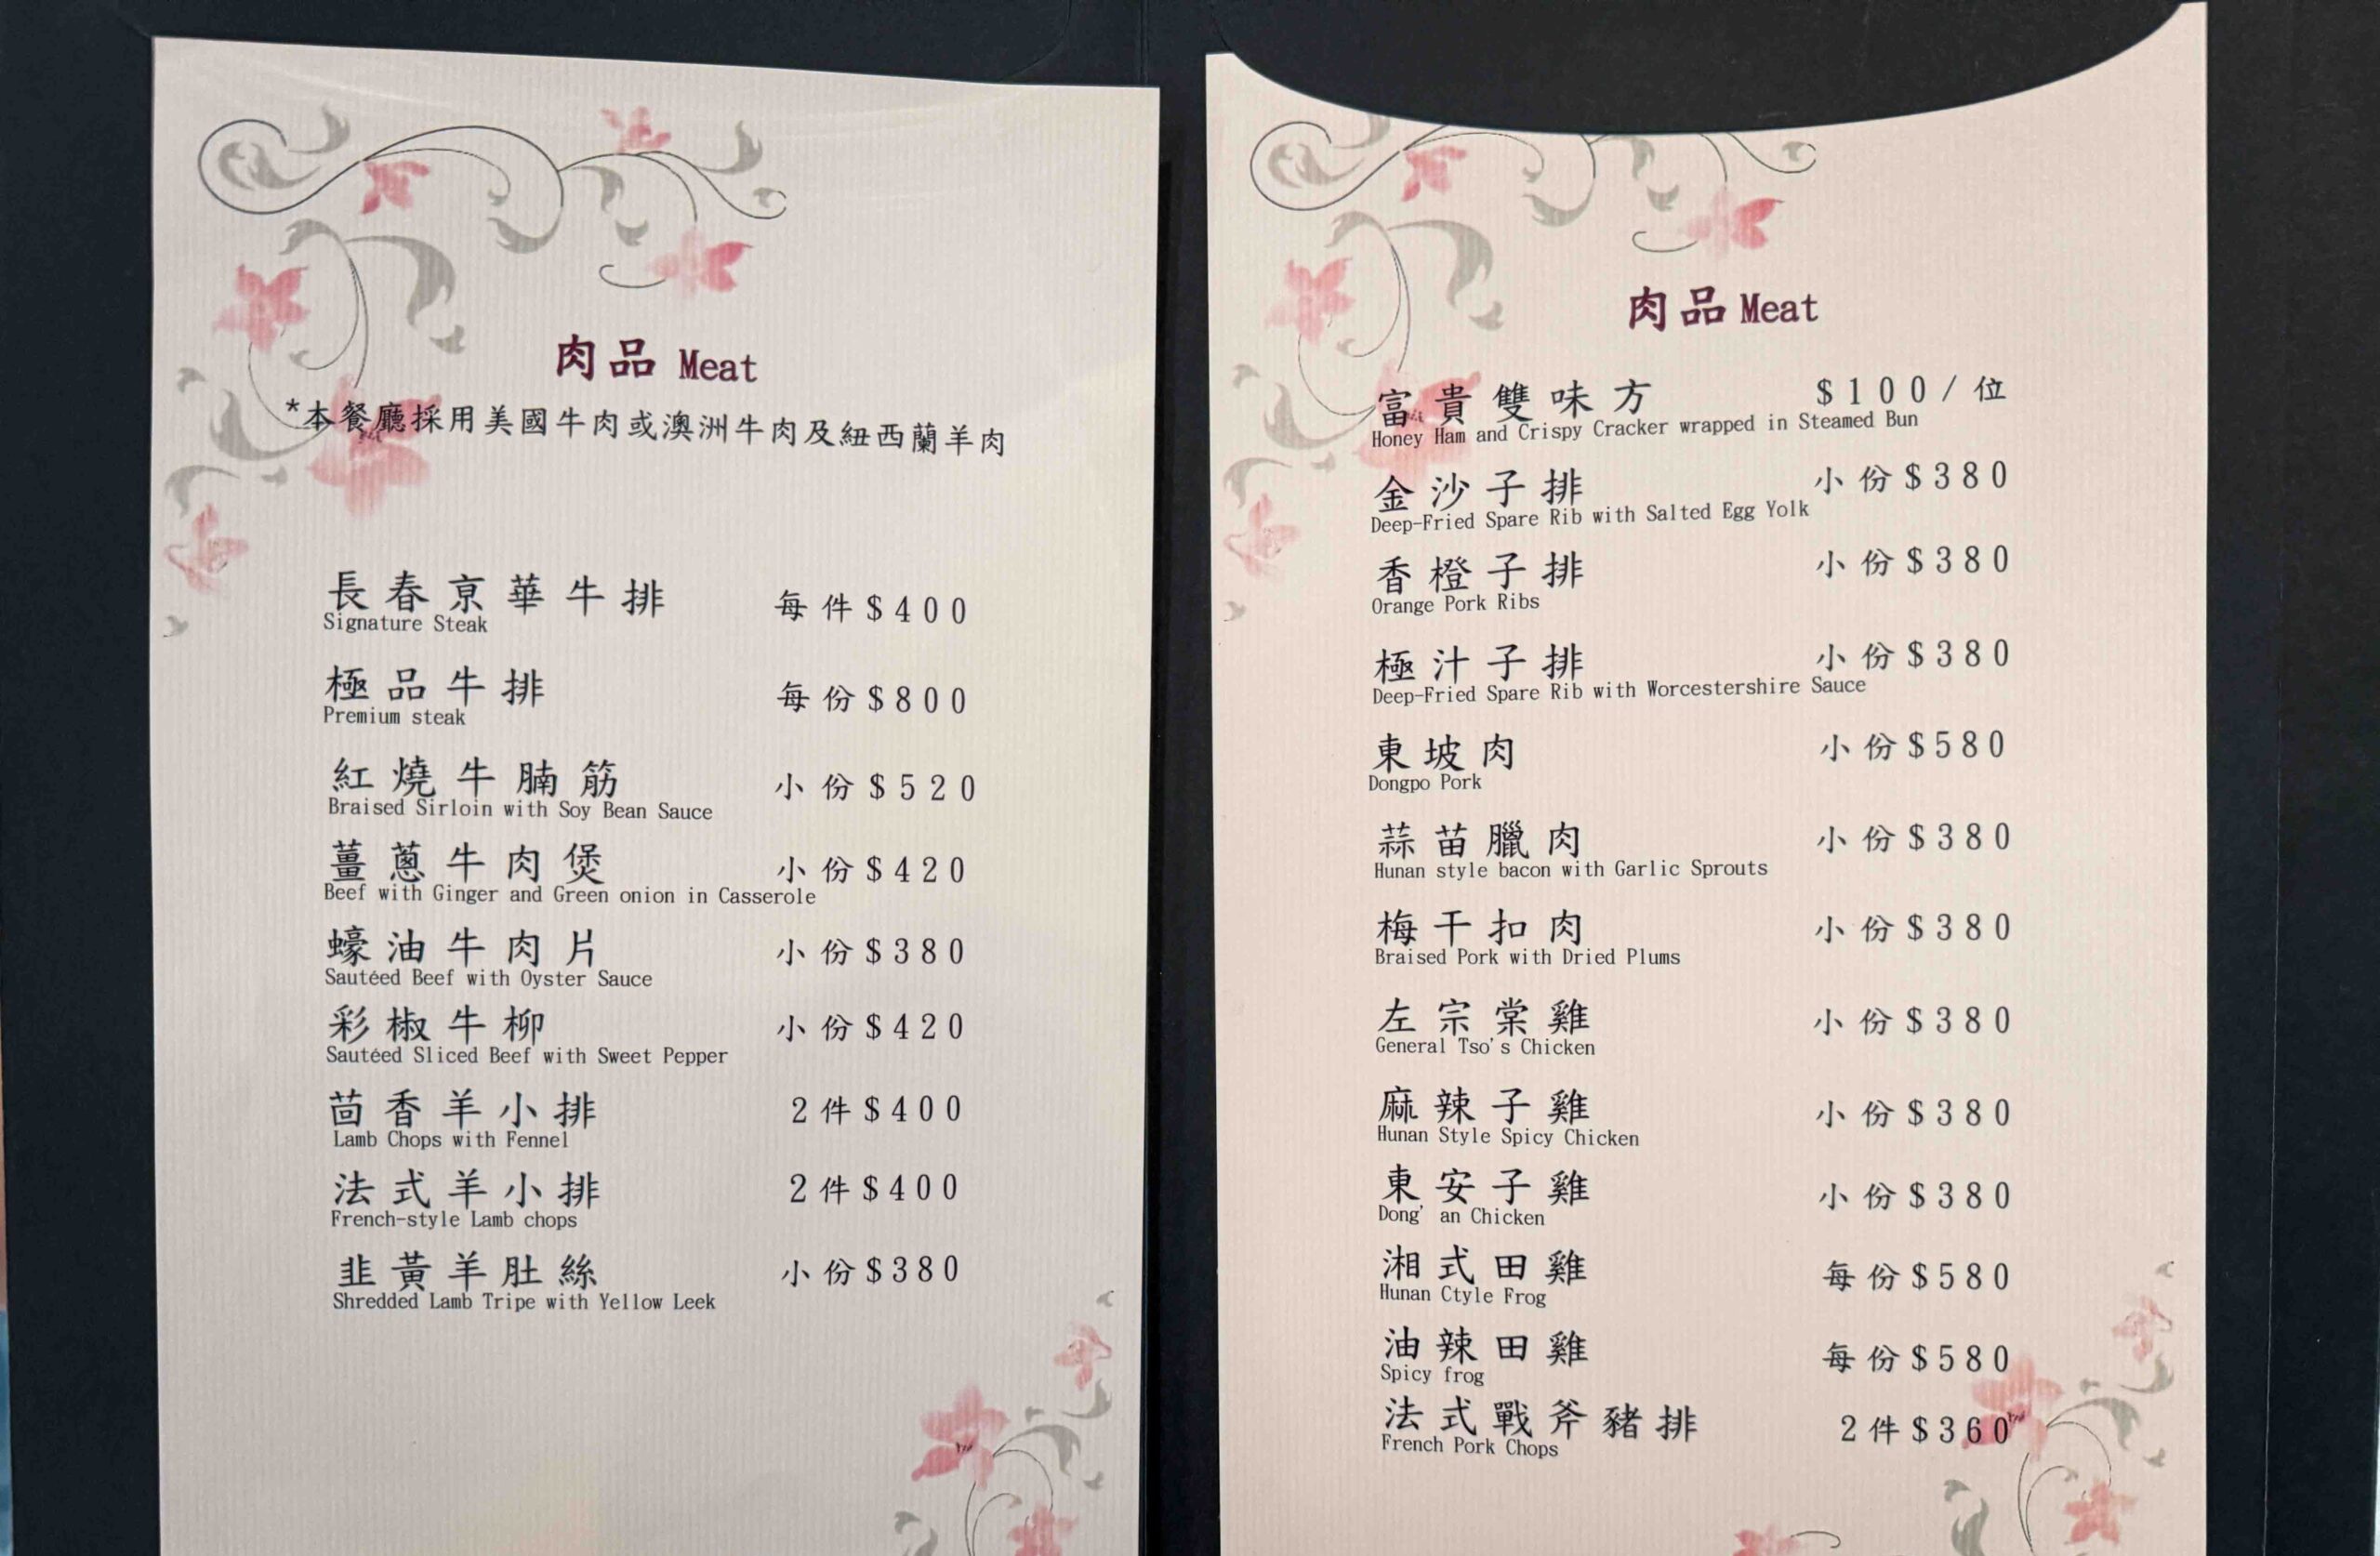 肉品 Meat
*本餐廳採用美國牛肉或澳洲牛肉及紐西蘭羊肉
長春京華牛排 每件$400
Signature Steak
極品牛排 每份$800
Premium steak
紅燒牛腩筋 小份$520
Braised Sirloin with Soy Bean Sauce
薑蔥牛肉煲 小份$420
Beef with Ginger and Green onion in Casserole
蠔油牛肉片 小份$380
Sautéed Beef with Oyster Sauce
彩椒牛柳 小份$420
Sautéed Sliced Beef with Sweet Pepper
茴香羊小排 2件$400
Lamb Chops with Fennel
法式羊小排 2件$400
French-style Lamb chops
韭黃羊肚絲 小份$380
Shredded Lamb Tripe with Yellow Leek
肉品 Meat
富貴雙味方 $100/位
Honey Ham and Crispy Cracker wrapped in Steamed Bun
金沙子排 小份$380
Deep-Fried Spare Rib with Salted Egg Yolk
香橙子排 小份$380
Orange Pork Ribs
極汁子排 小份$380
Deep-Fried Spare Rib with Worcestershire Sauce
東坡肉 小份$580
Dongpo Pork
蒜苗臘肉 小份$380
Hunan style bacon with Garlic Sprouts
梅干扣肉 小份$380
Braised Pork with Dried Plums
左宗棠雞 小份$380
General Tso's Chicken
麻辣子雞 小份$380
Hunan Style Spicy Chicken
東安子雞 小份$380
Dong' an Chicken
湘式田雞 每份$580
Hunan Ctyle Frog
油辣田雞 每份$580
Spicy frog
法式戰斧豬排 2件$360
French Pork Chops